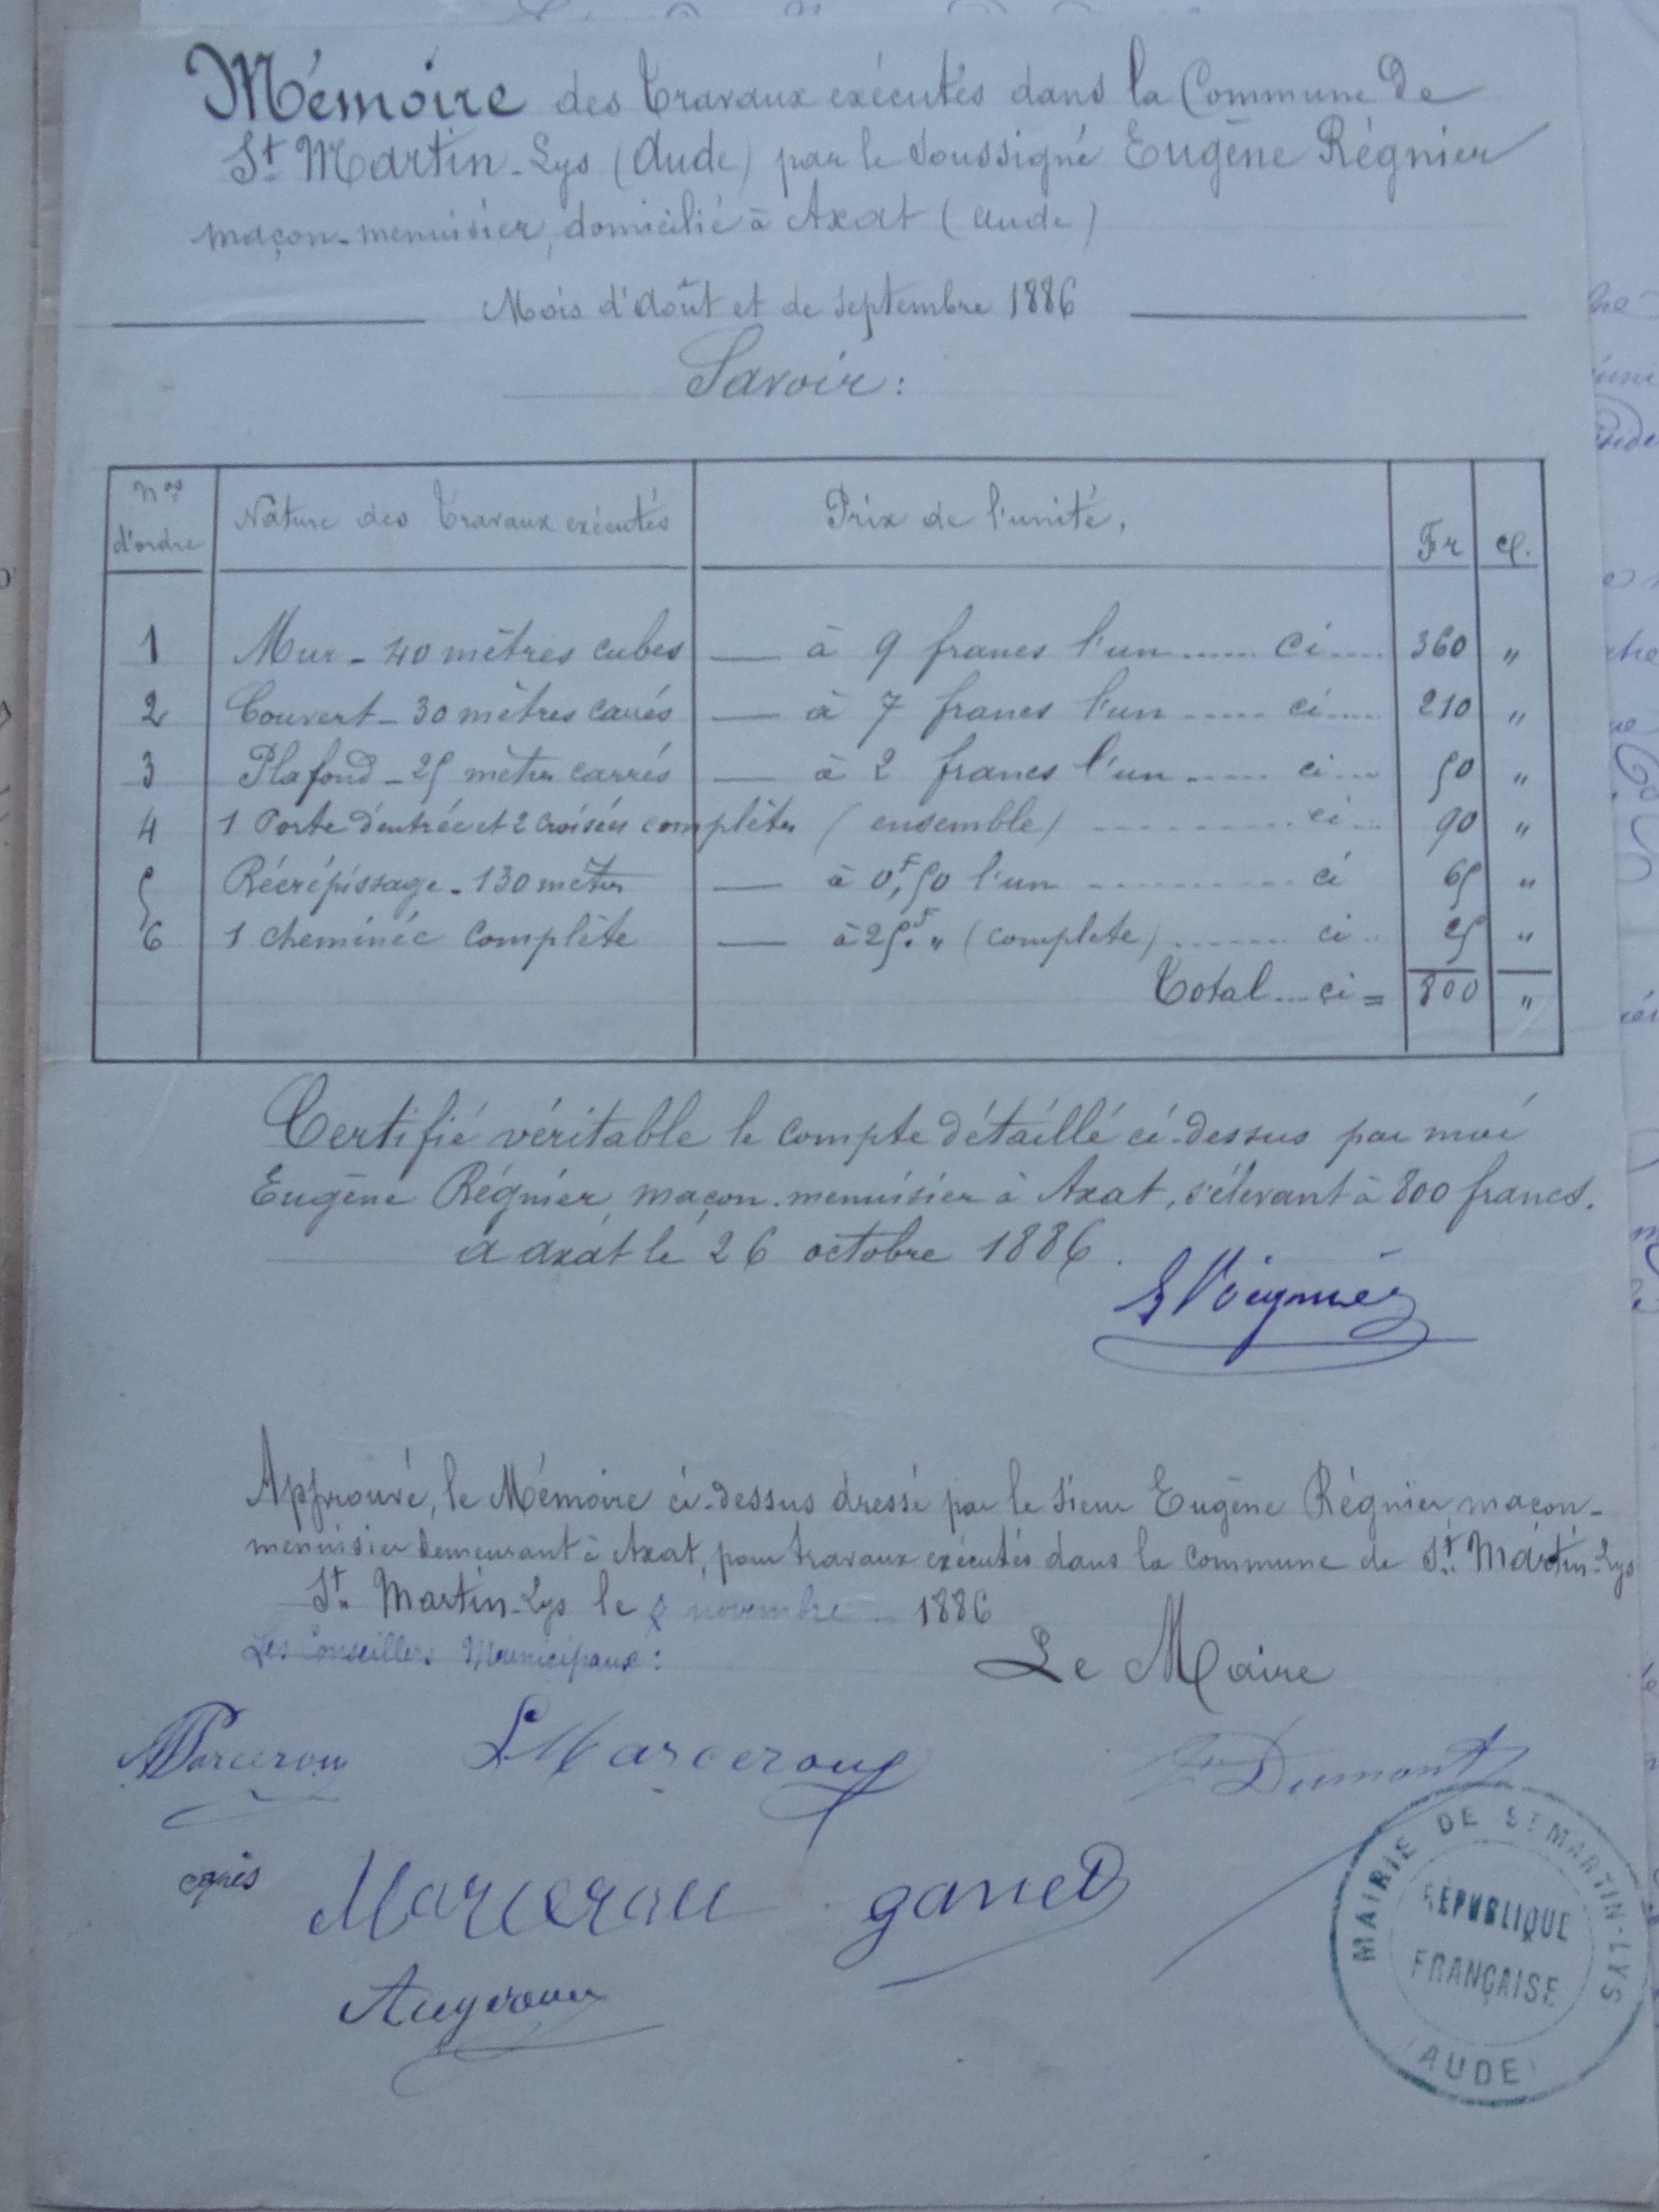 Mémoire des travaux exécutés dans la Commune de
St Martin-Lys (Aude) par le soussigné Eugène Régnier
maçon-menuisier, domicilié à Axat (Aude)
Mois d'Août et de septembre 1886
Savoir :
nos d'ordre | Nature des travaux exécutés | Prix de l'unité, | Fr | c.
1 Mur - 40 mètres cubes — à 9 francs l'un ...... ci .... 360 "
2 Couvert - 30 mètres carrés — à 7 francs l'un ..... ci .... 210 "
3 Plafond - 25 mètres carrés — à 2 francs l'un ..... ci ... 50 "
4 1 Porte d'entrée et 2 croisées complètes (ensemble) .......... ci ... 90 "
5 Récrépissage - 130 mètres — à 0F,50 l'un .......... ci 65 "
6 1 cheminée complète — à 25F. " (complete) ....... ci .. 25 "
Total ... ci = 800 "
Certifié véritable le compte détaillé ci-dessus par moi
Eugène Régnier, maçon-menuisier à Axat, s'élevant à 800 francs.
à axat le 26 octobre 1886.
Approuvé, le Mémoire ci-dessus dressé par le sieur Eugène Régnier, maçon-
menuisier demeurant à Axat, pour travaux exécutés dans la commune de St Martin-Lys
St Martin-Lys le novembre 1886
Les Conseillers Municipaux :
Le Maire
Marcerou
Marcerou
Dumont
Marcerou
MAIRIE DE ST MARTIN-LYS
RÉPUBLIQUE
FRANÇAISE
(AUDE)